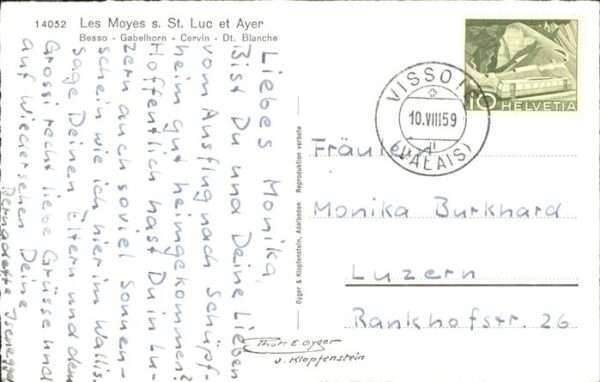 14052 Les Moyes s. St. Luc et Ayer
Besso - Gabelhorn - Cervin - Dt. Blanche
Liebes Monika,
Bist Du und Deine Lieben
vom Ausflug nach Schüpf-
heim gut heimgekommen?
Hoffentlich hast Du in Lu-
zern auch soviel Sonnen-
schein wie ich hier im Wallis.
Sage Deinen Eltern und dem
Grosi recht liebe Grüsse und
auf Wiedersehen Deine
Bernadette
Gyger & Klopfenstein, Adelboden Reproduction verboten
VISSOIE
10.VIII.59
(VALAIS)
10 HELVETIA
Fräulein
Monika Burkhard
Luzern
Bankhofstr. 26
Phot. E. Gyger
u. Klopfenstein